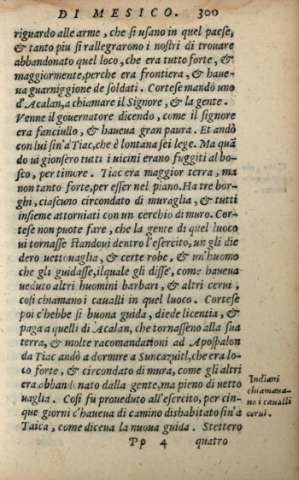 DI MESICO. 300
riguardo alle arme, che si usano in quel paese,
& tanto piu si rallegrarono i nostri di trouare
abbandonato quel loco, che era tutto forte, &
maggiormente, perche era frontiera, & haue-
ua guarniggione de soldati. Cortese mandò uno
d'Acalan, a chiamare il Signore, & la gente.
Venne il gouernatore dicendo, come il signore
era fanciullo, & haueua gran paura. Et andò
con lui sin'a Tiac, che è lontana sei lege. Ma quā
do ui gionsero tutti i uicini erano fuggiti al bo-
sco, per timore. Tiac era maggior terra, ma
non tanto forte, per esser nel piano. Ha tre bor-
ghi, ciascuno circondato di muraglia, & tutti
insieme attorniati con un cerchio di muro. Cor-
tese non puote fare, che la gente di quel luoco
ui tornasse standoui dentro l'esercito, un gli die
dero uettouaglia, & certe robe, & un'huomo
che gli guidasse, il quale gli disse, come haueua
ueduto altri huomini barbati, & altri cerui,
cosi chiamano i caualli in quel luoco. Cortese
poi c'hebbe si buona guida, diede licentia, &
paga a quelli di Acalan, che tornasseno alla sua
terra, & molte racomandationi ad Apospalon
da Tiac andò a dormire a Suncazuitl, che era lo-
co forte, & circondato di mura, come gli altri
era abbandonato dalla gente, ma pieno di uetto
uaglia. Cosi fu proueduto all'esercito, per cin-
que giorni c'haueua di camino dishabitato sin'a
Taica, come diceua la nuoua guida. Stettero
Indiani
chiamaua-
no i caualli
cerui.
Pp 4 quatro